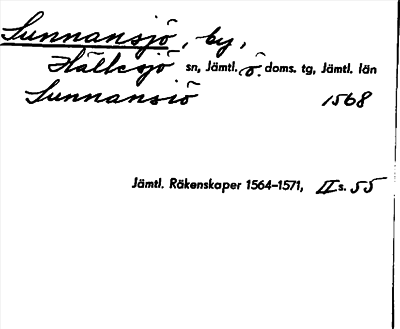 Sunnansjö, by,
Hällesjö sn, Jämtl. ö. doms. tg, Jämtl. län
Sunnansiö 1568
Jämtl. Räkenskaper 1564-1571, II s. 55